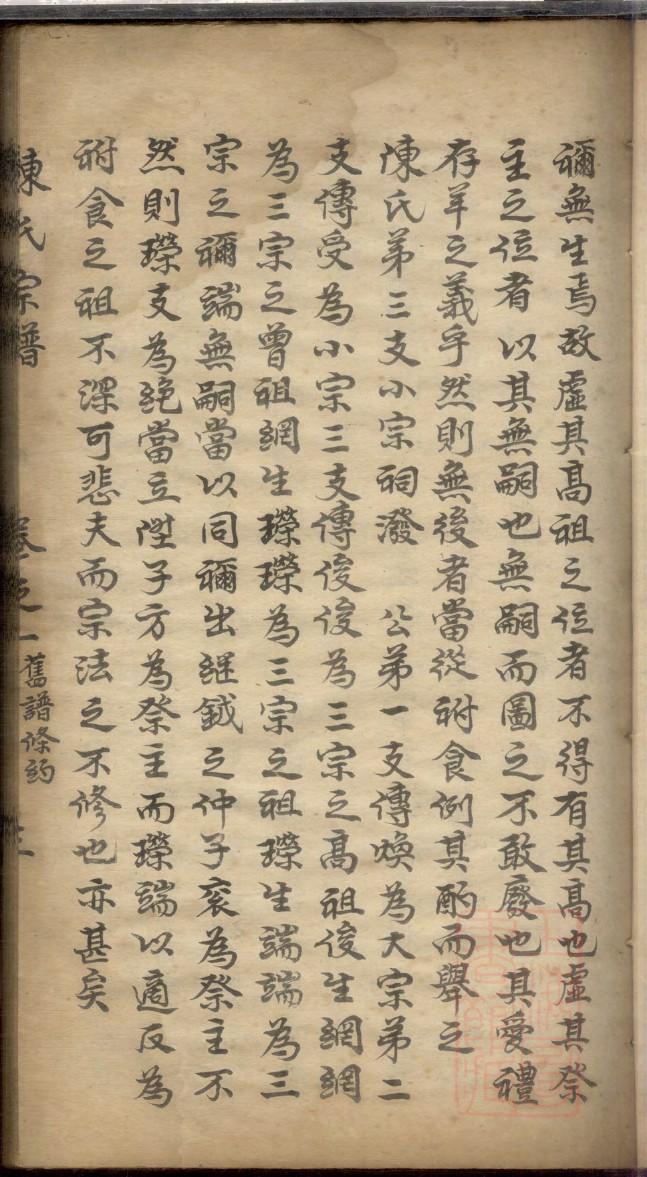 禰無生焉故虛其高祖之位者不得有其高也虛其祭
主之位者以其無嗣也無嗣而圖之不敢廢也其愛禮
存羊之義乎然則無後者當從祔食例其酌而舉之
陳氏第三支小宗祠潑 公第一支傳煥為大宗第二
支傳受為小宗三支傳俊俊為三宗之高祖俊生網網
為三宗之曾祖網生瓅瓅為三宗之祖瓅生端端為三
宗之禰端無嗣當以同禰出继鉞之仲子衮為祭主不
然則瓅支為絕當立陞子方為祭主而瓅端以適反為
祔食之祖不深可悲夫而宗法之不修也亦甚矣
陳氏宗譜 卷之一 舊譜條約